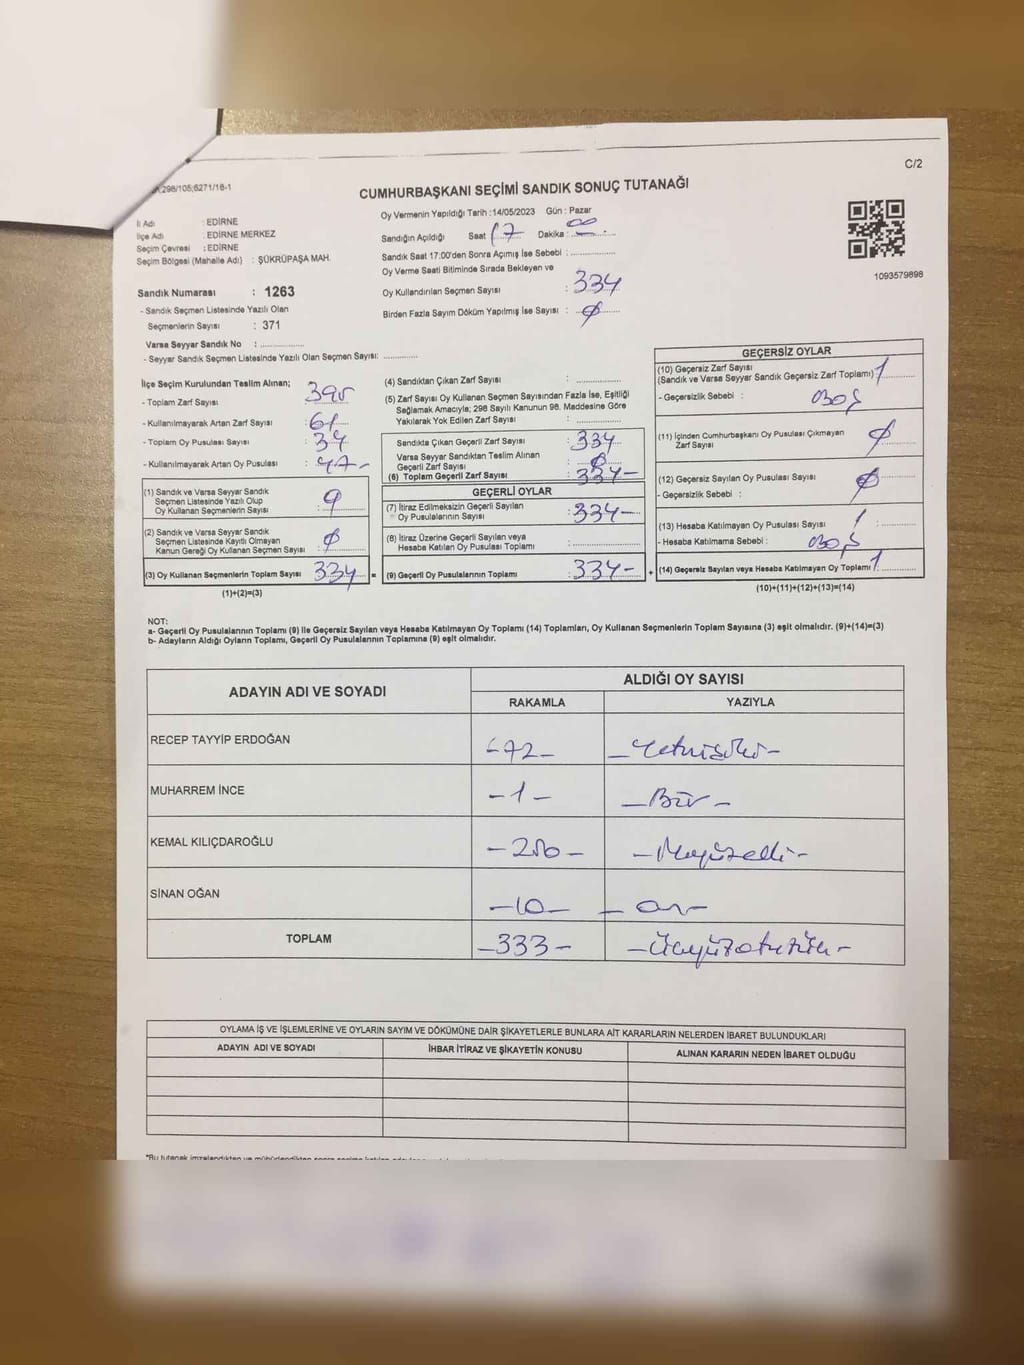 C/2
298/105;6271/16-1
CUMHURBAŞKANI SEÇİMİ SANDIK SONUÇ TUTANAĞI
İl Adı : EDİRNE
İlçe Adı : EDİRNE MERKEZ
Seçim Çevresi : EDİRNE
Seçim Bölgesi (Mahalle Adı) : ŞÜKRÜPAŞA MAH.
Oy Vermenin Yapıldığı Tarih :14/05/2023 Gün : Pazar
Sandığın Açıldığı Saat 17 Dakika :
Sandık Saat 17:00'den Sonra Açımış İse Sebebi :
Oy Verme Saati Bitiminde Sırada Bekleyen ve
Oy Kullandırılan Seçmen Sayısı : 334
Birden Fazla Sayım Döküm Yapılmış İse Sayısı : ∅
1093579898
Sandık Numarası : 1263
- Sandık Seçmen Listesinde Yazılı Olan
Seçmenlerin Sayısı : 371
Varsa Seyyar Sandık No :
- Seyyar Sandık Seçmen Listesinde Yazılı Olan Seçmen Sayısı:
İlçe Seçim Kurulundan Teslim Alınan;
- Toplam Zarf Sayısı : 395
- Kullanılmayarak Artan Zarf Sayısı : 61
- Toplam Oy Pusulası Sayısı :
- Kullanılmayarak Artan Oy Pusulası :
(1) Sandık ve Varsa Seyyar Sandık
Seçmen Listesinde Yazılı Olup
Oy Kullanan Seçmenlerin Sayısı :
(2) Sandık ve Varsa Seyyar Sandık
Seçmen Listesinde Kayıtlı Olmayan
Kanun Gereği Oy Kullanan Seçmen Sayısı : ∅
(3) Oy Kullanan Seçmenlerin Toplam Sayısı 334 =
(1)+(2)=(3)
(4) Sandıktan Çıkan Zarf Sayısı :
(5) Zarf Sayısı Oy Kullanan Seçmen Sayısından Fazla İse, Eşitliği
Sağlamak Amacıyla; 298 Sayılı Kanunun 98. Maddesine Göre
Yakılarak Yok Edilen Zarf Sayısı :
Sandıkta Çıkan Geçerli Zarf Sayısı : 334
Varsa Seyyar Sandıktan Teslim Alınan
Geçerli Zarf Sayısı : ∅
(6) Toplam Geçerli Zarf Sayısı : 334-
GEÇERLİ OYLAR
(7) İtiraz Edilmeksizin Geçerli Sayılan
Oy Pusulalarının Sayısı : 334-
(8) İtiraz Üzerine Geçerli Sayılan veya
Hesaba Katılan Oy Pusulası Toplamı :
(9) Geçerli Oy Pusulalarının Toplamı : 334- +
GEÇERSİZ OYLAR
(10) Geçersiz Zarf Sayısı
(Sandık ve Varsa Seyyar Sandık Geçersiz Zarf Toplamı) 1
- Geçersizlik Sebebi : BOŞ
(11) İçinden Cumhurbaşkanı Oy Pusulası Çıkmayan
Zarf Sayısı : ∅
(12) Geçersiz Sayılan Oy Pusulası Sayısı : ∅
- Geçersizlik Sebebi :
(13) Hesaba Katılmayan Oy Pusulası Sayısı : 1
- Hesaba Katılmama Sebebi : BOŞ
(14) Geçersiz Sayılan veya Hesaba Katılmayan Oy Toplamı 1
(10)+(11)+(12)+(13)=(14)
NOT:
a- Geçerli Oy Pusulalarının Toplamı (9) ile Geçersiz Sayılan veya Hesaba Katılmayan Oy Toplamı (14) Toplamları, Oy Kullanan Seçmenlerin Toplam Sayısına (3) eşit olmalıdır. (9)+(14)=(3)
b- Adayların Aldığı Oyların Toplamı, Geçerli Oy Pusulalarının Toplamına (9) eşit olmalıdır.
ADAYIN ADI VE SOYADI
ALDIĞI OY SAYISI
RAKAMLA YAZIYLA
RECEP TAYYİP ERDOĞAN -72- -Yetmişiki-
MUHARREM İNCE -1- -Bir-
KEMAL KILIÇDAROĞLU -250- -İkiyüzelli-
SİNAN OĞAN -10- -on-
TOPLAM -333- -Üçyüzotuzüç-
OYLAMA İŞ VE İŞLEMLERİNE VE OYLARIN SAYIM VE DÖKÜMÜNE DAİR ŞİKAYETLERLE BUNLARA AİT KARARLARIN NELERDEN İBARET BULUNDUKLARI
ADAYIN ADI VE SOYADI İHBAR İTİRAZ VE ŞİKAYETİN KONUSU ALINAN KARARIN NEDEN İBARET OLDUĞU